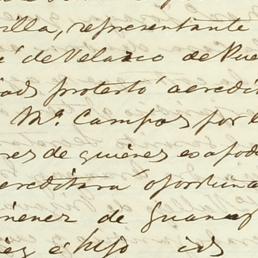 villa, representante
é de Velasco de Pue
protestó acredit
Ma. Campos por
res de quienes es apode
creditará oportuna
menez de Guana
é hijo ids